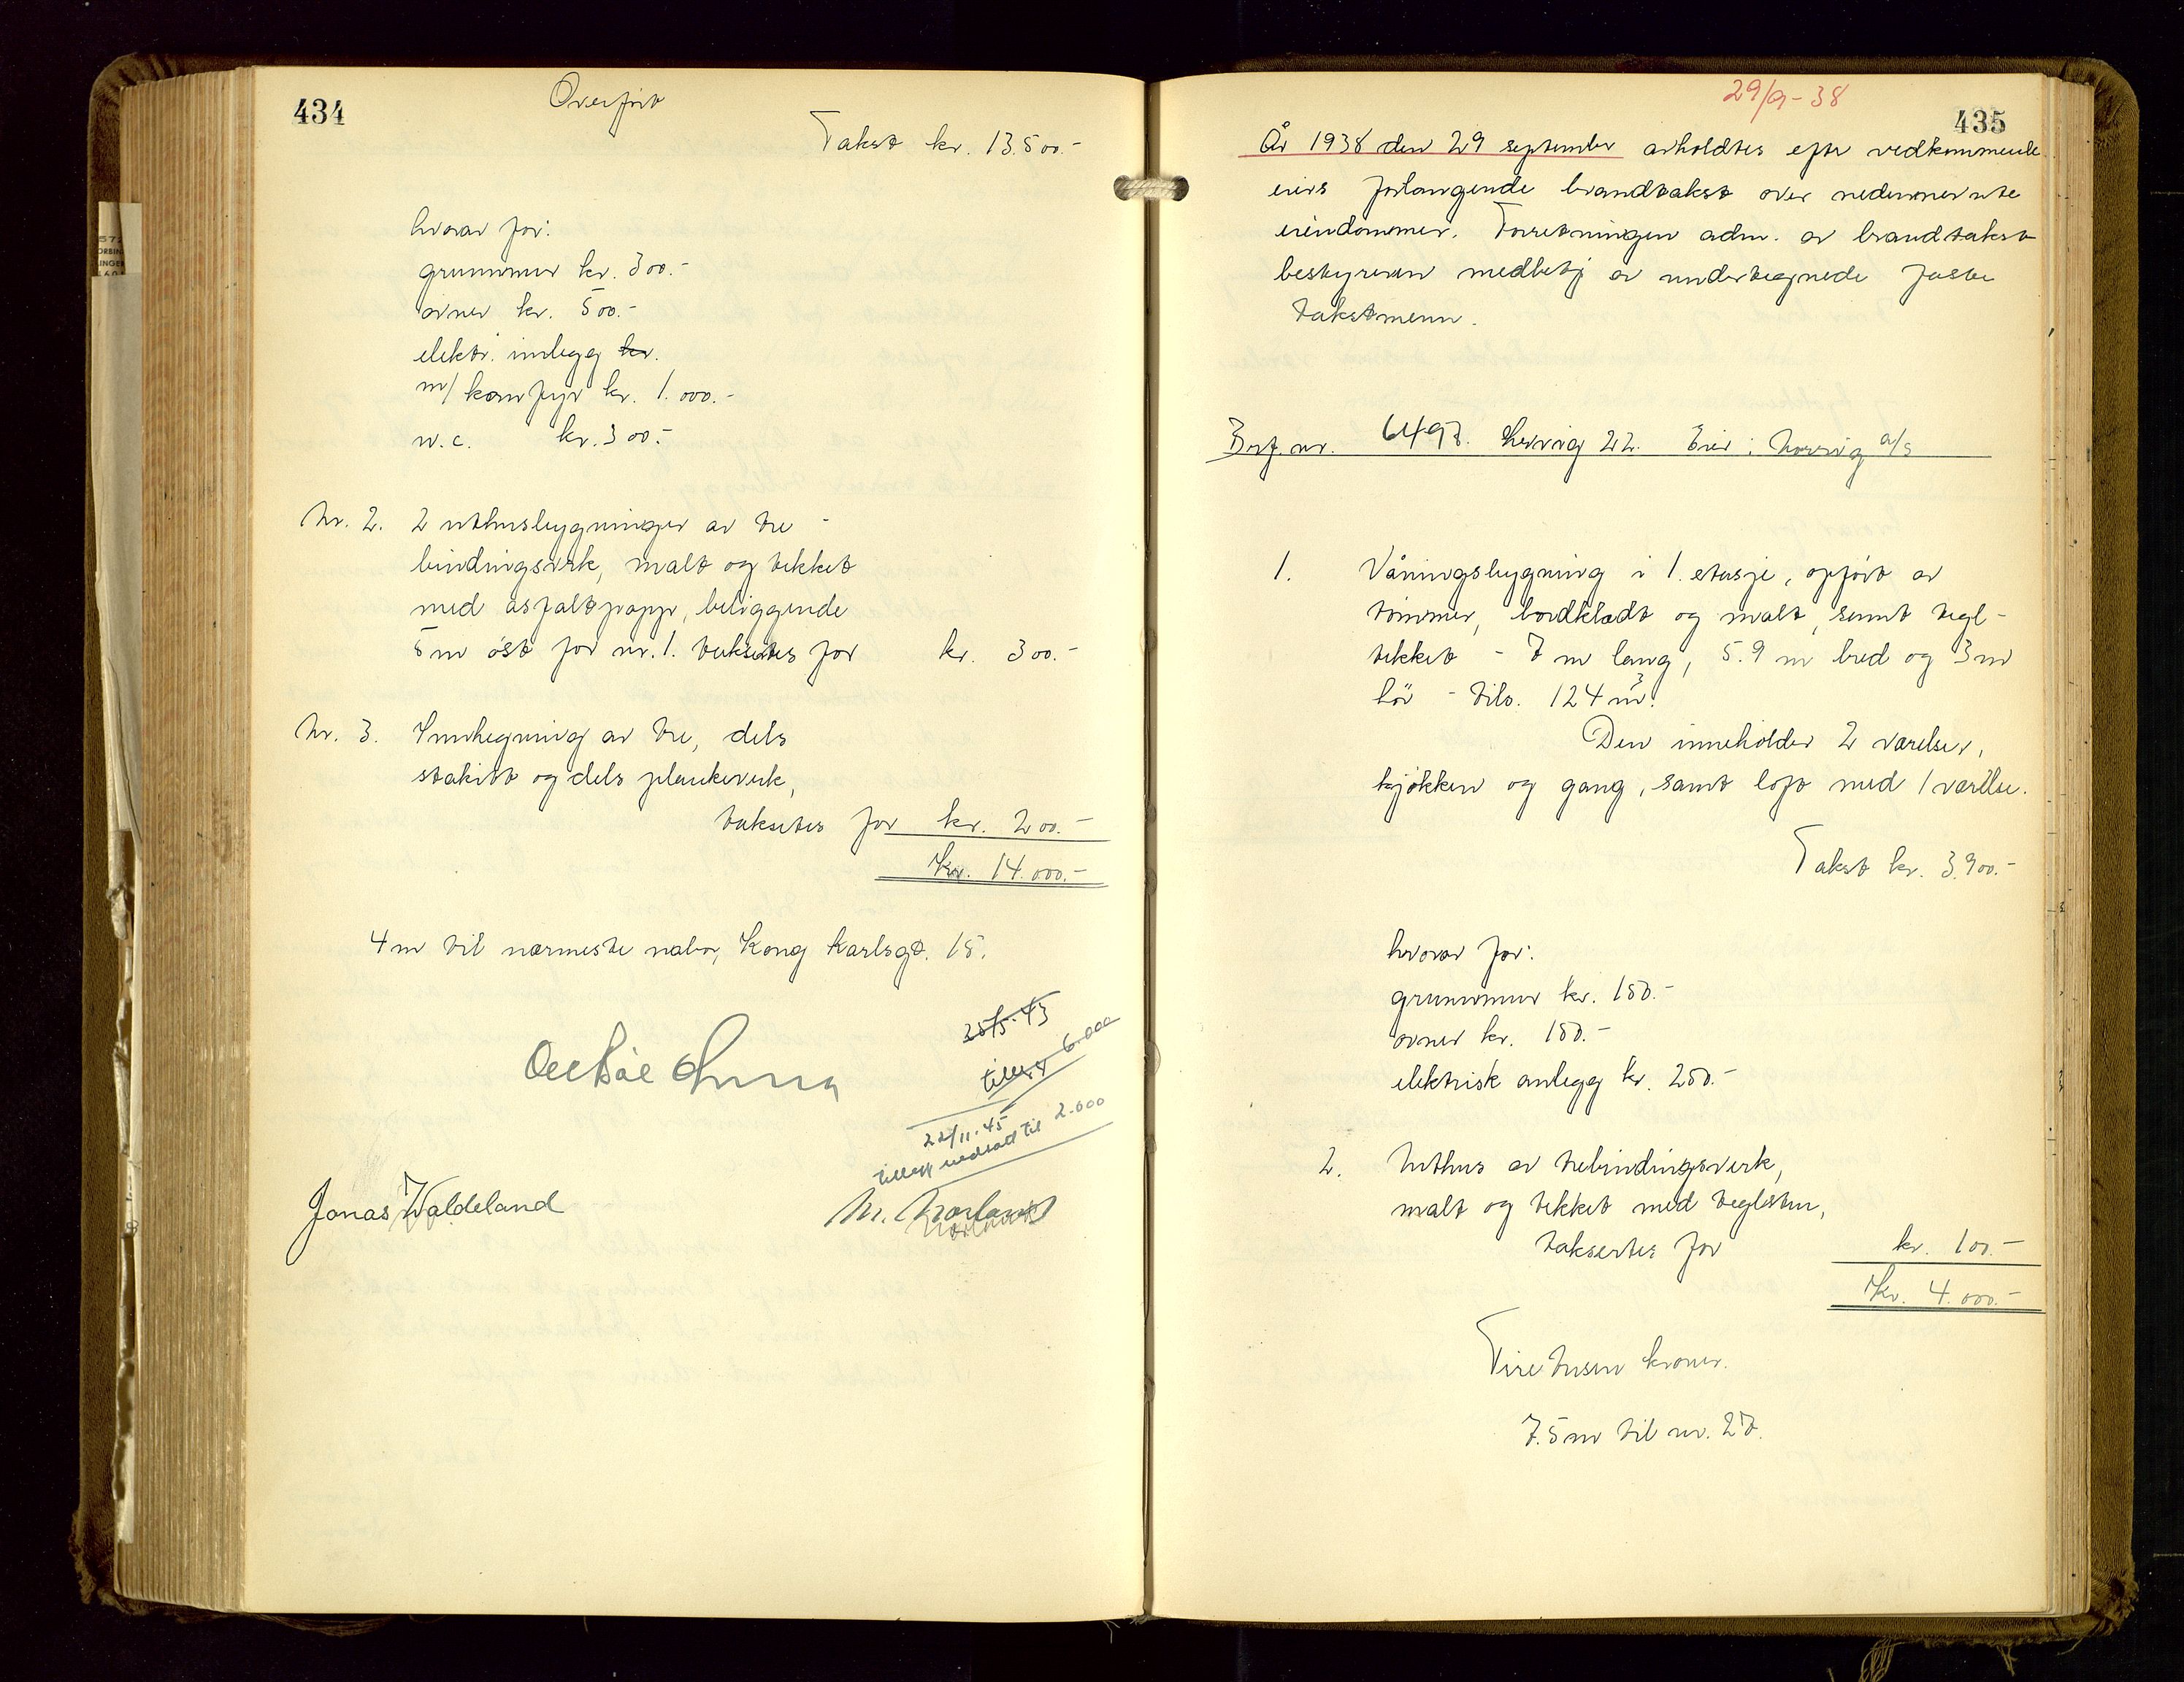 434
Overført
Takst kr. 13.500.-
hvorav for:
grunnmur kr. 300.-
ovner kr. 500.-
elektr. innlegg kr.
m/ komfyr kr. 1.000.-
w.c. kr. 300.-
Nr. 2. 2 uthusbygninger av tre-
bindingsverk, malt og tekket
med asfaltpapp, beliggende
5 m øst for nr. 1. takseres for kr. 300.-
Nr. 3. Innhegning av tre, dels
stakitt og dels plankeverk,
takseres for kr. 200.-
Kr. 14.000.-
4 m til nærmeste nabo, Kong Karlsgt. 15.
25/5-43
tillegg 6.000
22/11-45
tillegg nedsatt til 2.000
Jonas Waldeland
435
29/9-38
År 1938 den 29 september avholdtes efter vedkommende
eiers forlangende brandtakst over nedennevnte
eiendommer. Forretningen adm. av brandtakst-
bestyreren medbetj av undertegnede faste
takstmenn.
6497. Lervig 22. Eier: Norvig a/s
1. Våningsbygning i 1. etasje, opført av
tømmer, bordklædt og malt, samt tegl-
tekket - 7 m lang, 5.9 m bred og 3 m
høi - tils. 124 m³.
Den inneholder 2 værelser,
kjøkken og gang, samt loft med 1 værelse.
Takst kr. 3.900.-
hvorav for:
grunnmur kr. 150.-
ovner kr. 150.-
elektrisk anlegg kr. 250.-
2. Uthus av trebindingsverk,
malt og tekket med teglsten,
takseres for kr. 100.-
Kr. 4.000.-
Fire tusen kroner.
7.5 m til nr. 27.